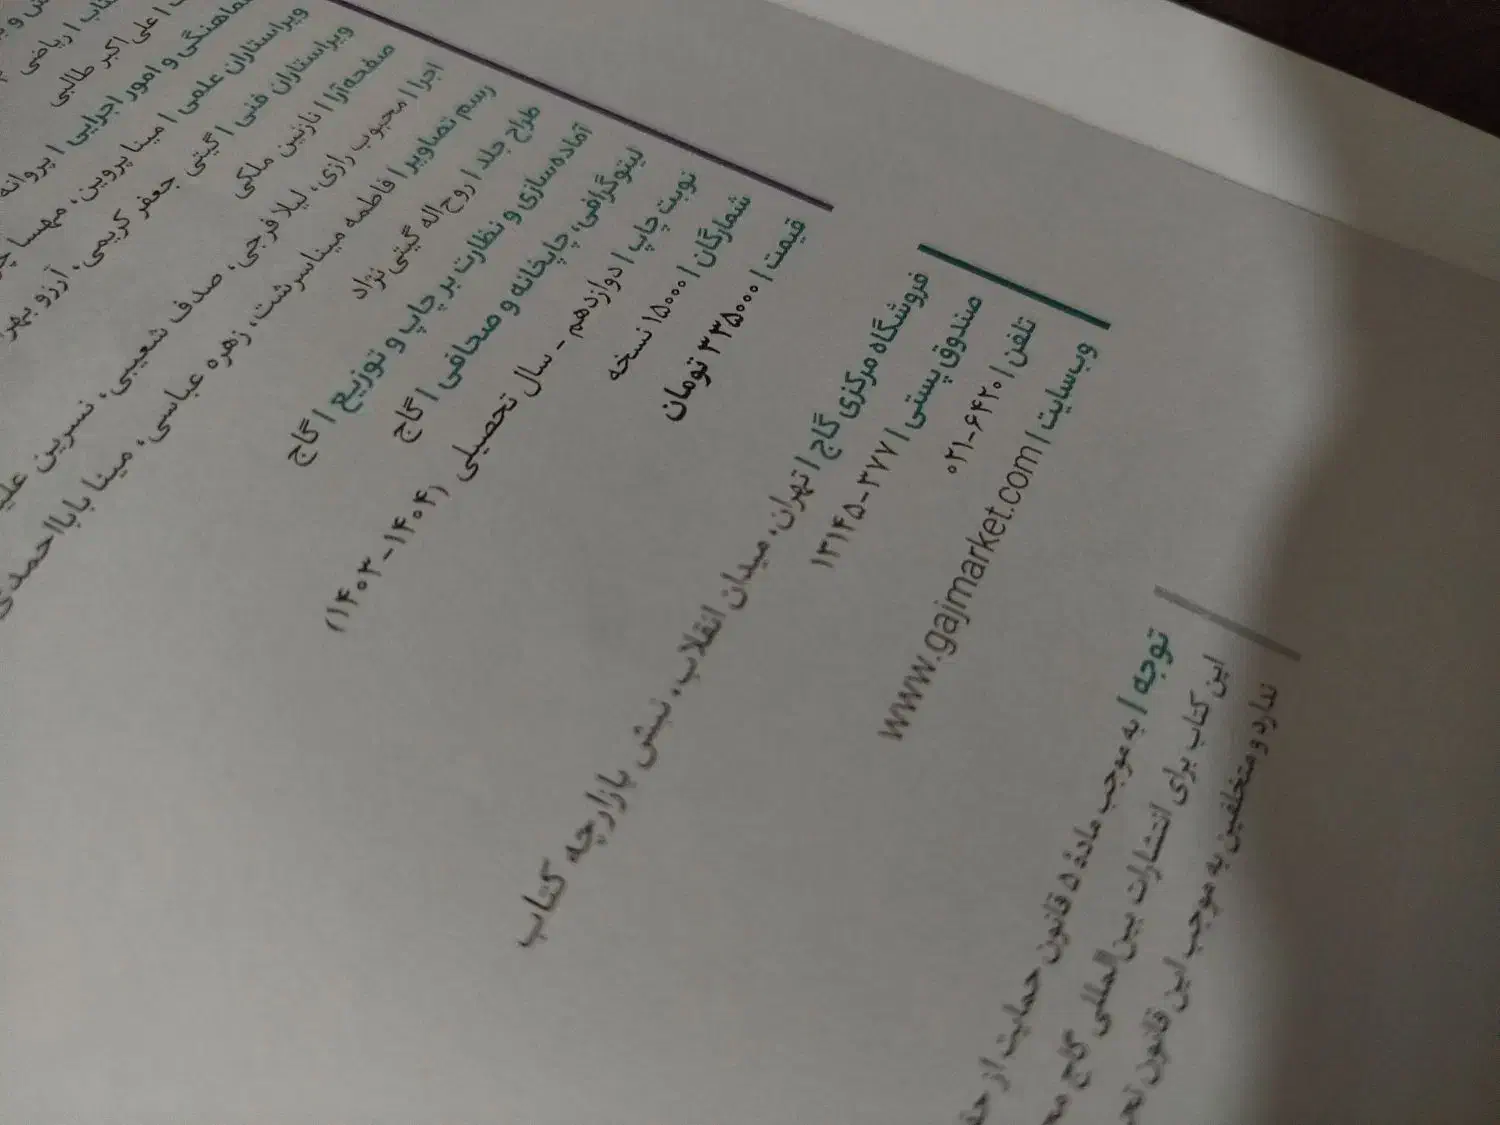 علی‌اکبر طالبی
هماهنگی و امور اجرایی | پروانه
ویراستاران علمی | مینا پروین، مهسا
ویراستاران فنی | گیتی جعفر کریمی، آرزو
صفحه‌آرا | نازنین ملکی
اجرا | محبوب رازی، لیلا فرجی، صدف شعیبی، نسرین
رسم تصاویر | فاطمه میناسرشت، زهره عباسی، مینا بابااحمدی
طراح جلد | روح‌اله گیتی نژاد
آماده‌سازی و نظارت بر چاپ و توزیع | گاج
لیتوگرافی، چاپخانه و صحافی | گاج
نوبت چاپ | دوازدهم - سال تحصیلی (۱۴۰۴-۱۴۰۳)
شمارگان | ۱۵۰۰۰ نسخه
قیمت | ۳۳۵۰۰۰ تومان
فروشگاه مرکزی گاج | تهران، میدان انقلاب، نبش بازارچه کتاب
صندوق پستی | ۳۷۷-۱۳۱۴۵
تلفن | ۰۲۱-۶۴۲۰
وب‌سایت | www.gajmarket.com
توجه | به موجب مادهٔ ۵ قانون حمایت از
این کتاب برای انتشارات بین‌المللی گاج
ندارد و متخلفین به موجب این قانون